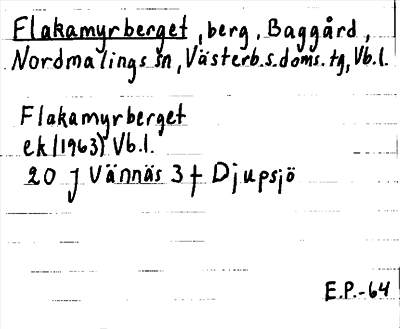 Flakamyrberget, berg, Baggård,
Nordmalings sn, Västerb.s.doms.tg, Vb.l.
Flakamyrberget
ek (1963) Vb.l.
20 J Vännäs 3 f Djupsjö
E.P.-64